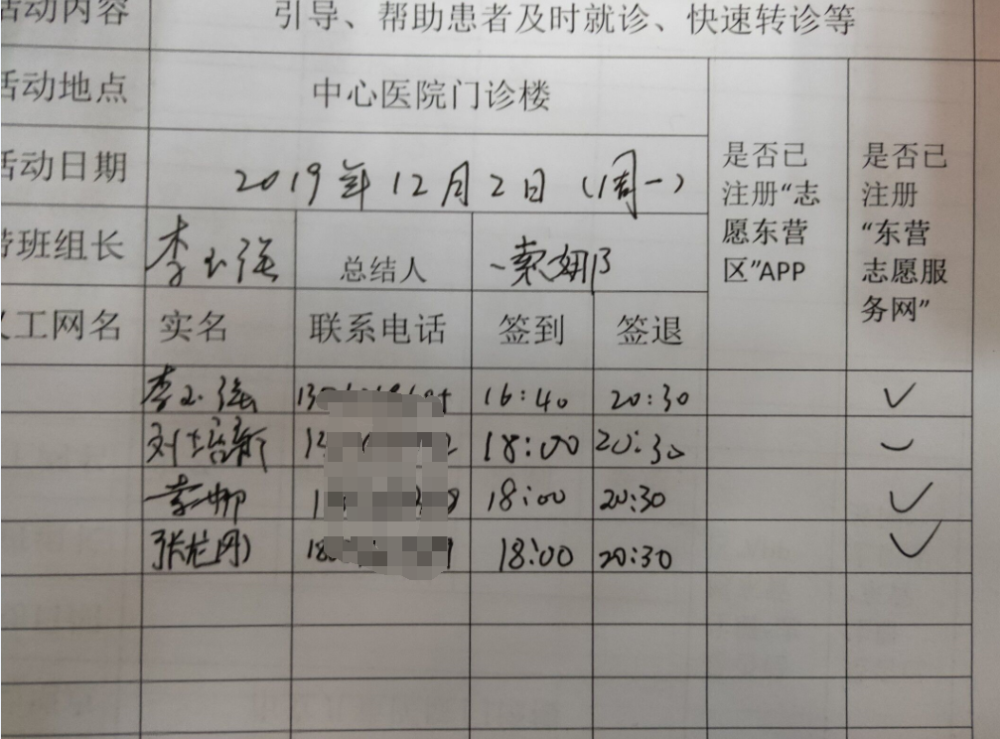 活动内容 引导、帮助患者及时就诊、快速转诊等
活动地点 中心医院门诊楼
活动日期 2019年12月2日(周一)
是否已注册“志愿东营区”APP
是否已注册“东营志愿服务网”
带班组长 李玉强 总结人 索娜
义工网名 实名 联系电话 签到 签退
李玉强 16:40 20:30 ✓
刘培新 18:00 20:30 ✓
索娜 18:00 20:30 ✓
张龙 18:00 20:30 ✓